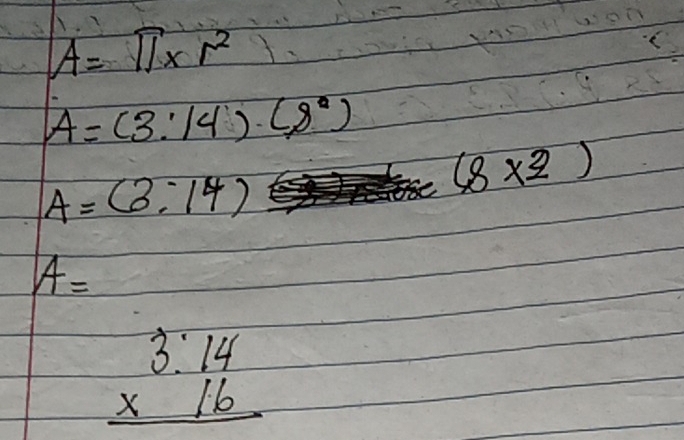 A = π x r²
A = (3.14) . (8²)
A = (3.14) (8 x 2)
A =
3.14
x 16